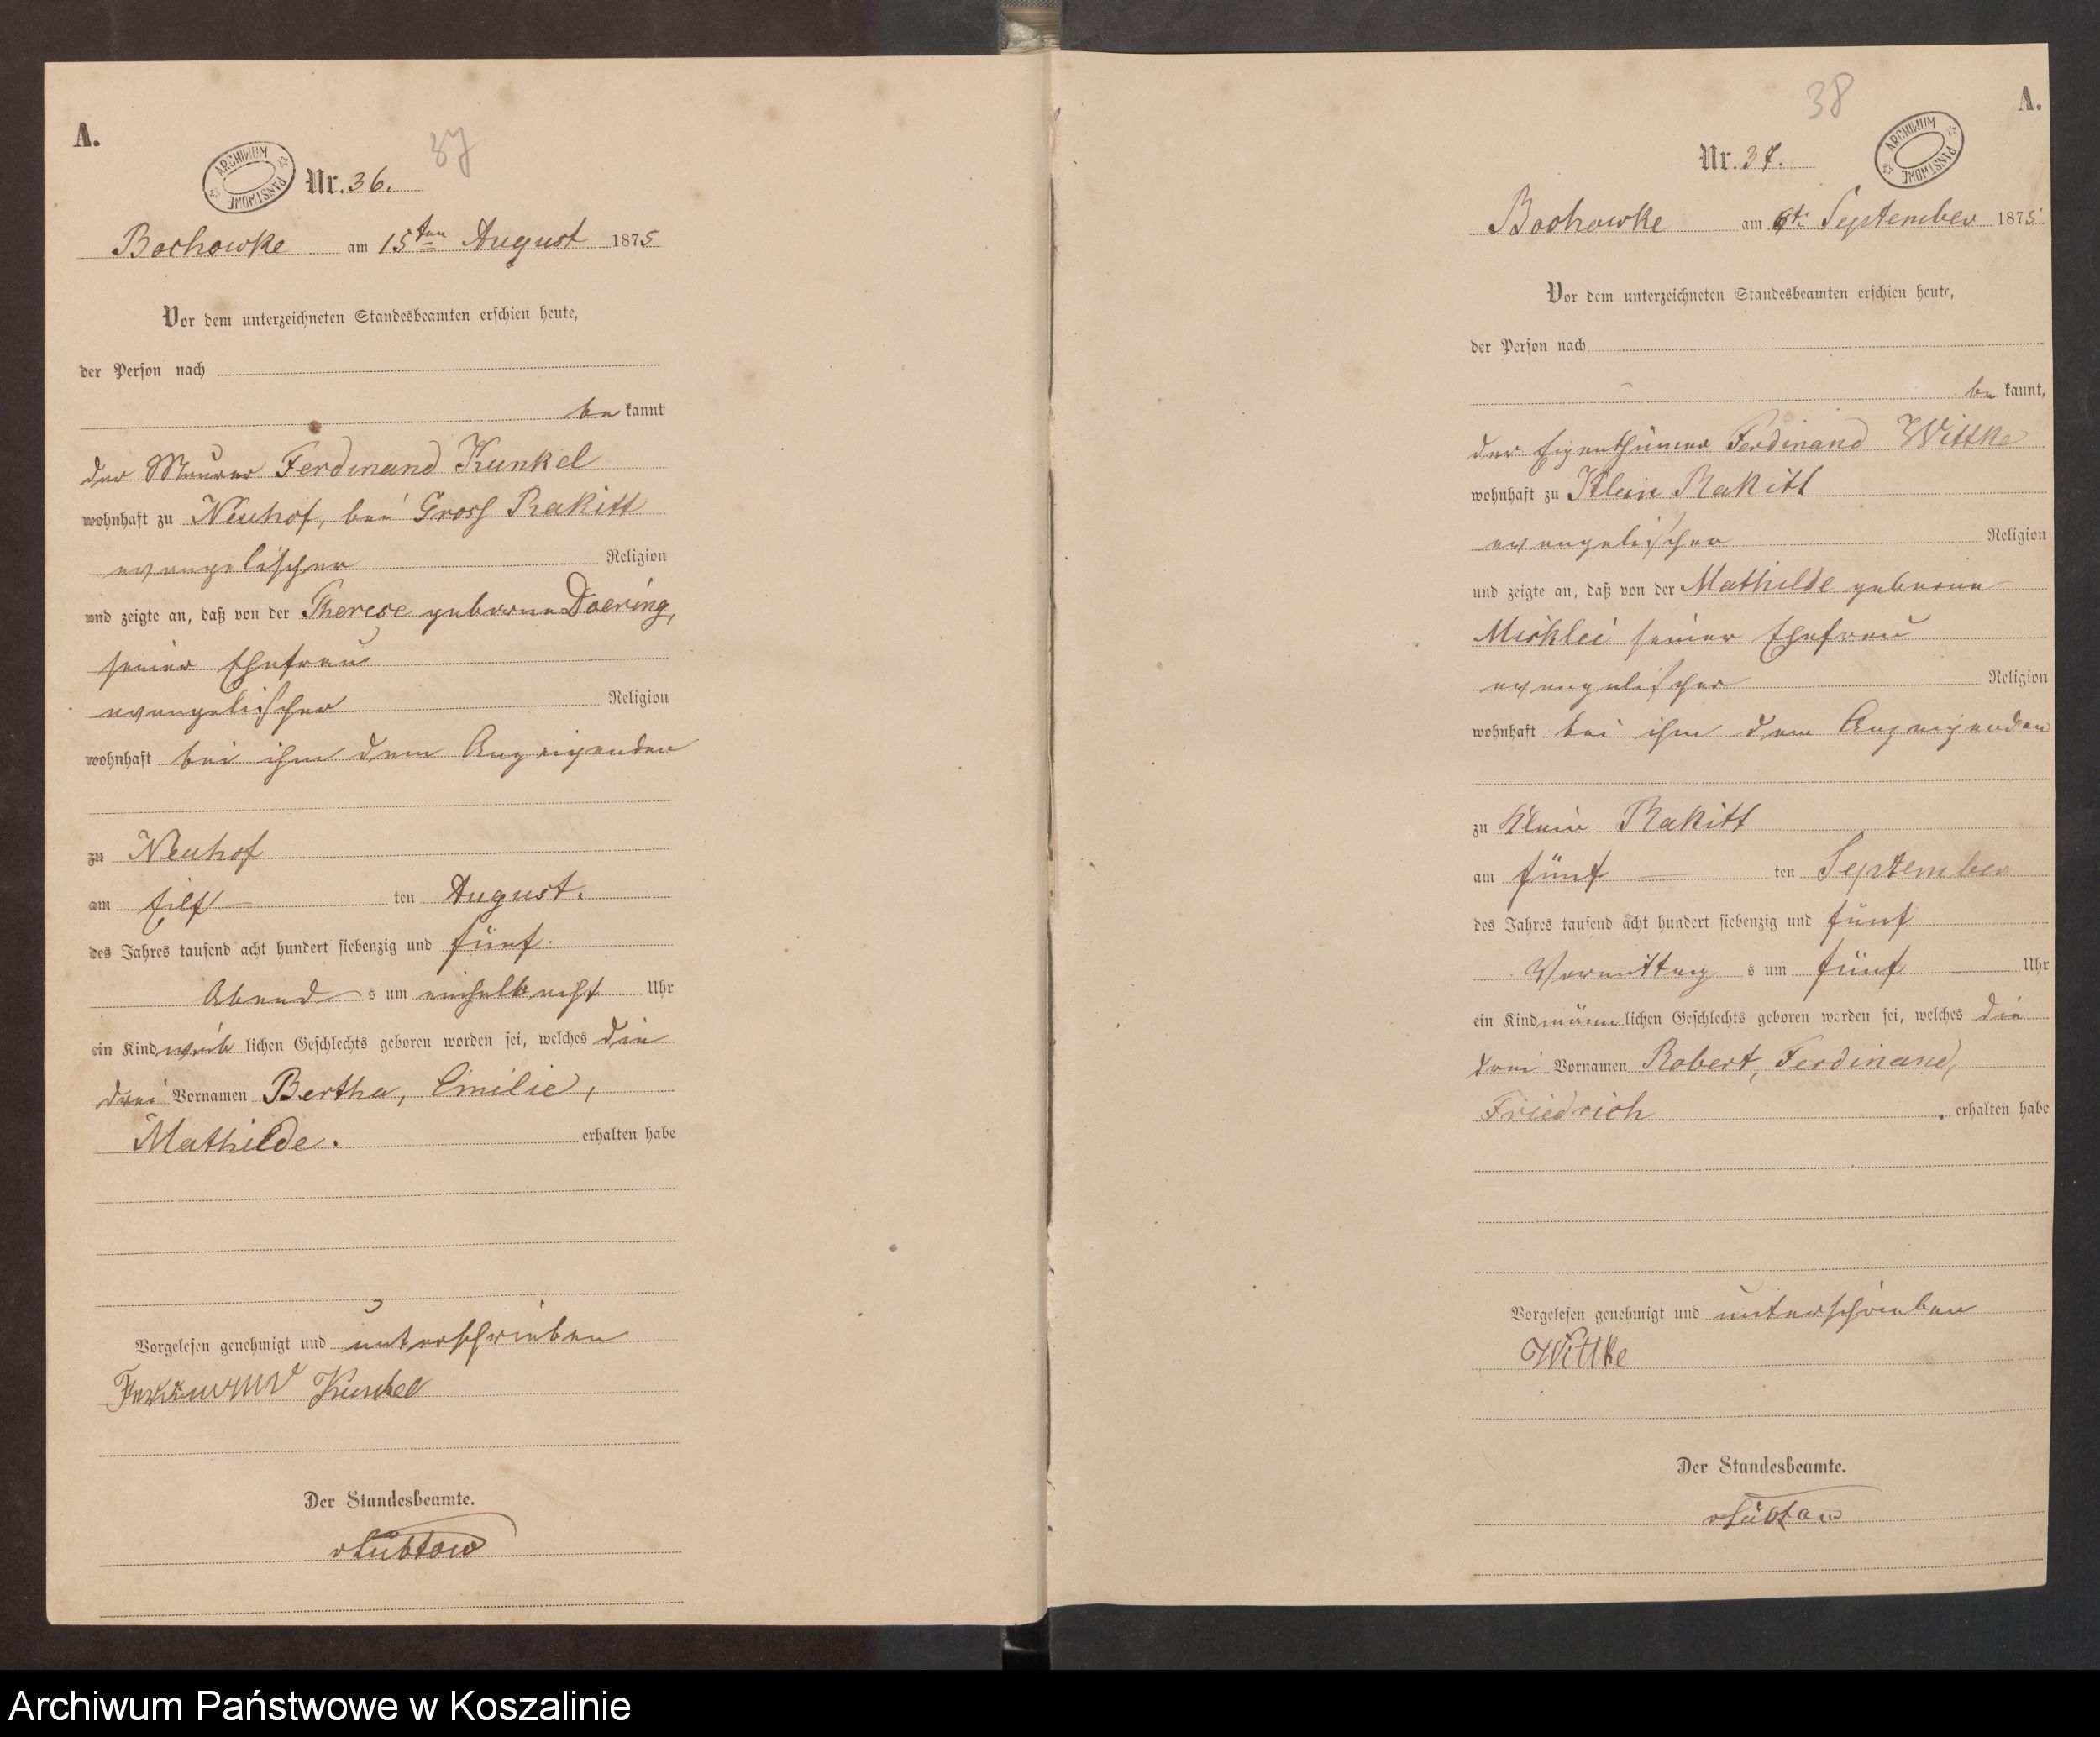 A.
ARCHIWUM PAŃSTWOWE
37
Nr. 36.
Bochowke am 15ten August 1875
Vor dem unterzeichneten Standesbeamten erschien heute,
der Person nach
be kannt
der Maurer Ferdinand Kunkel
wohnhaft zu Neuhof, bei Gross Rakitt
evangelischer Religion
und zeigte an, daß von der Therese geborne Doering,
seiner Ehefrau
evangelischer Religion
wohnhaft bei ihm dem Anzeigenden
zu Neuhof
am Eilf ten August.
des Jahres tausend acht hundert siebenzig und fünf.
Abend s um einhalbacht Uhr
ein Kind weib lichen Geschlechts geboren worden sei, welches die
drei Vornamen Bertha, Emilie,
Mathilde. erhalten habe
Vorgelesen genehmigt und unterschrieben
Ferdinand Kunkel
Der Standesbeamte.
vLübtow
A.
38
ARCHIWUM PAŃSTWOWE
Nr. 37.
Bochowke am 6t. September 1875
Vor dem unterzeichneten Standesbeamten erschien heute,
der Person nach
be kannt,
der Eigenthümer Ferdinand Wittke
wohnhaft zu Klein Rakitt
evangelischer Religion
und zeigte an, daß von der Mathilde geborene
seiner Ehefrau
evangelischer Religion
wohnhaft bei ihm dem Anzeigenden
zu Klein Rakitt
am fünf ten September
des Jahres tausend acht hundert siebenzig und fünf
Vormittag s um fünf Uhr
ein Kind männ lichen Geschlechts geboren worden sei, welches die
drei Vornamen Robert, Ferdinand,
Friedrich erhalten habe
Vorgelesen genehmigt und unterschrieben
Wittke
Der Standesbeamte.
vLübtow
Archiwum Państwowe w Koszalinie